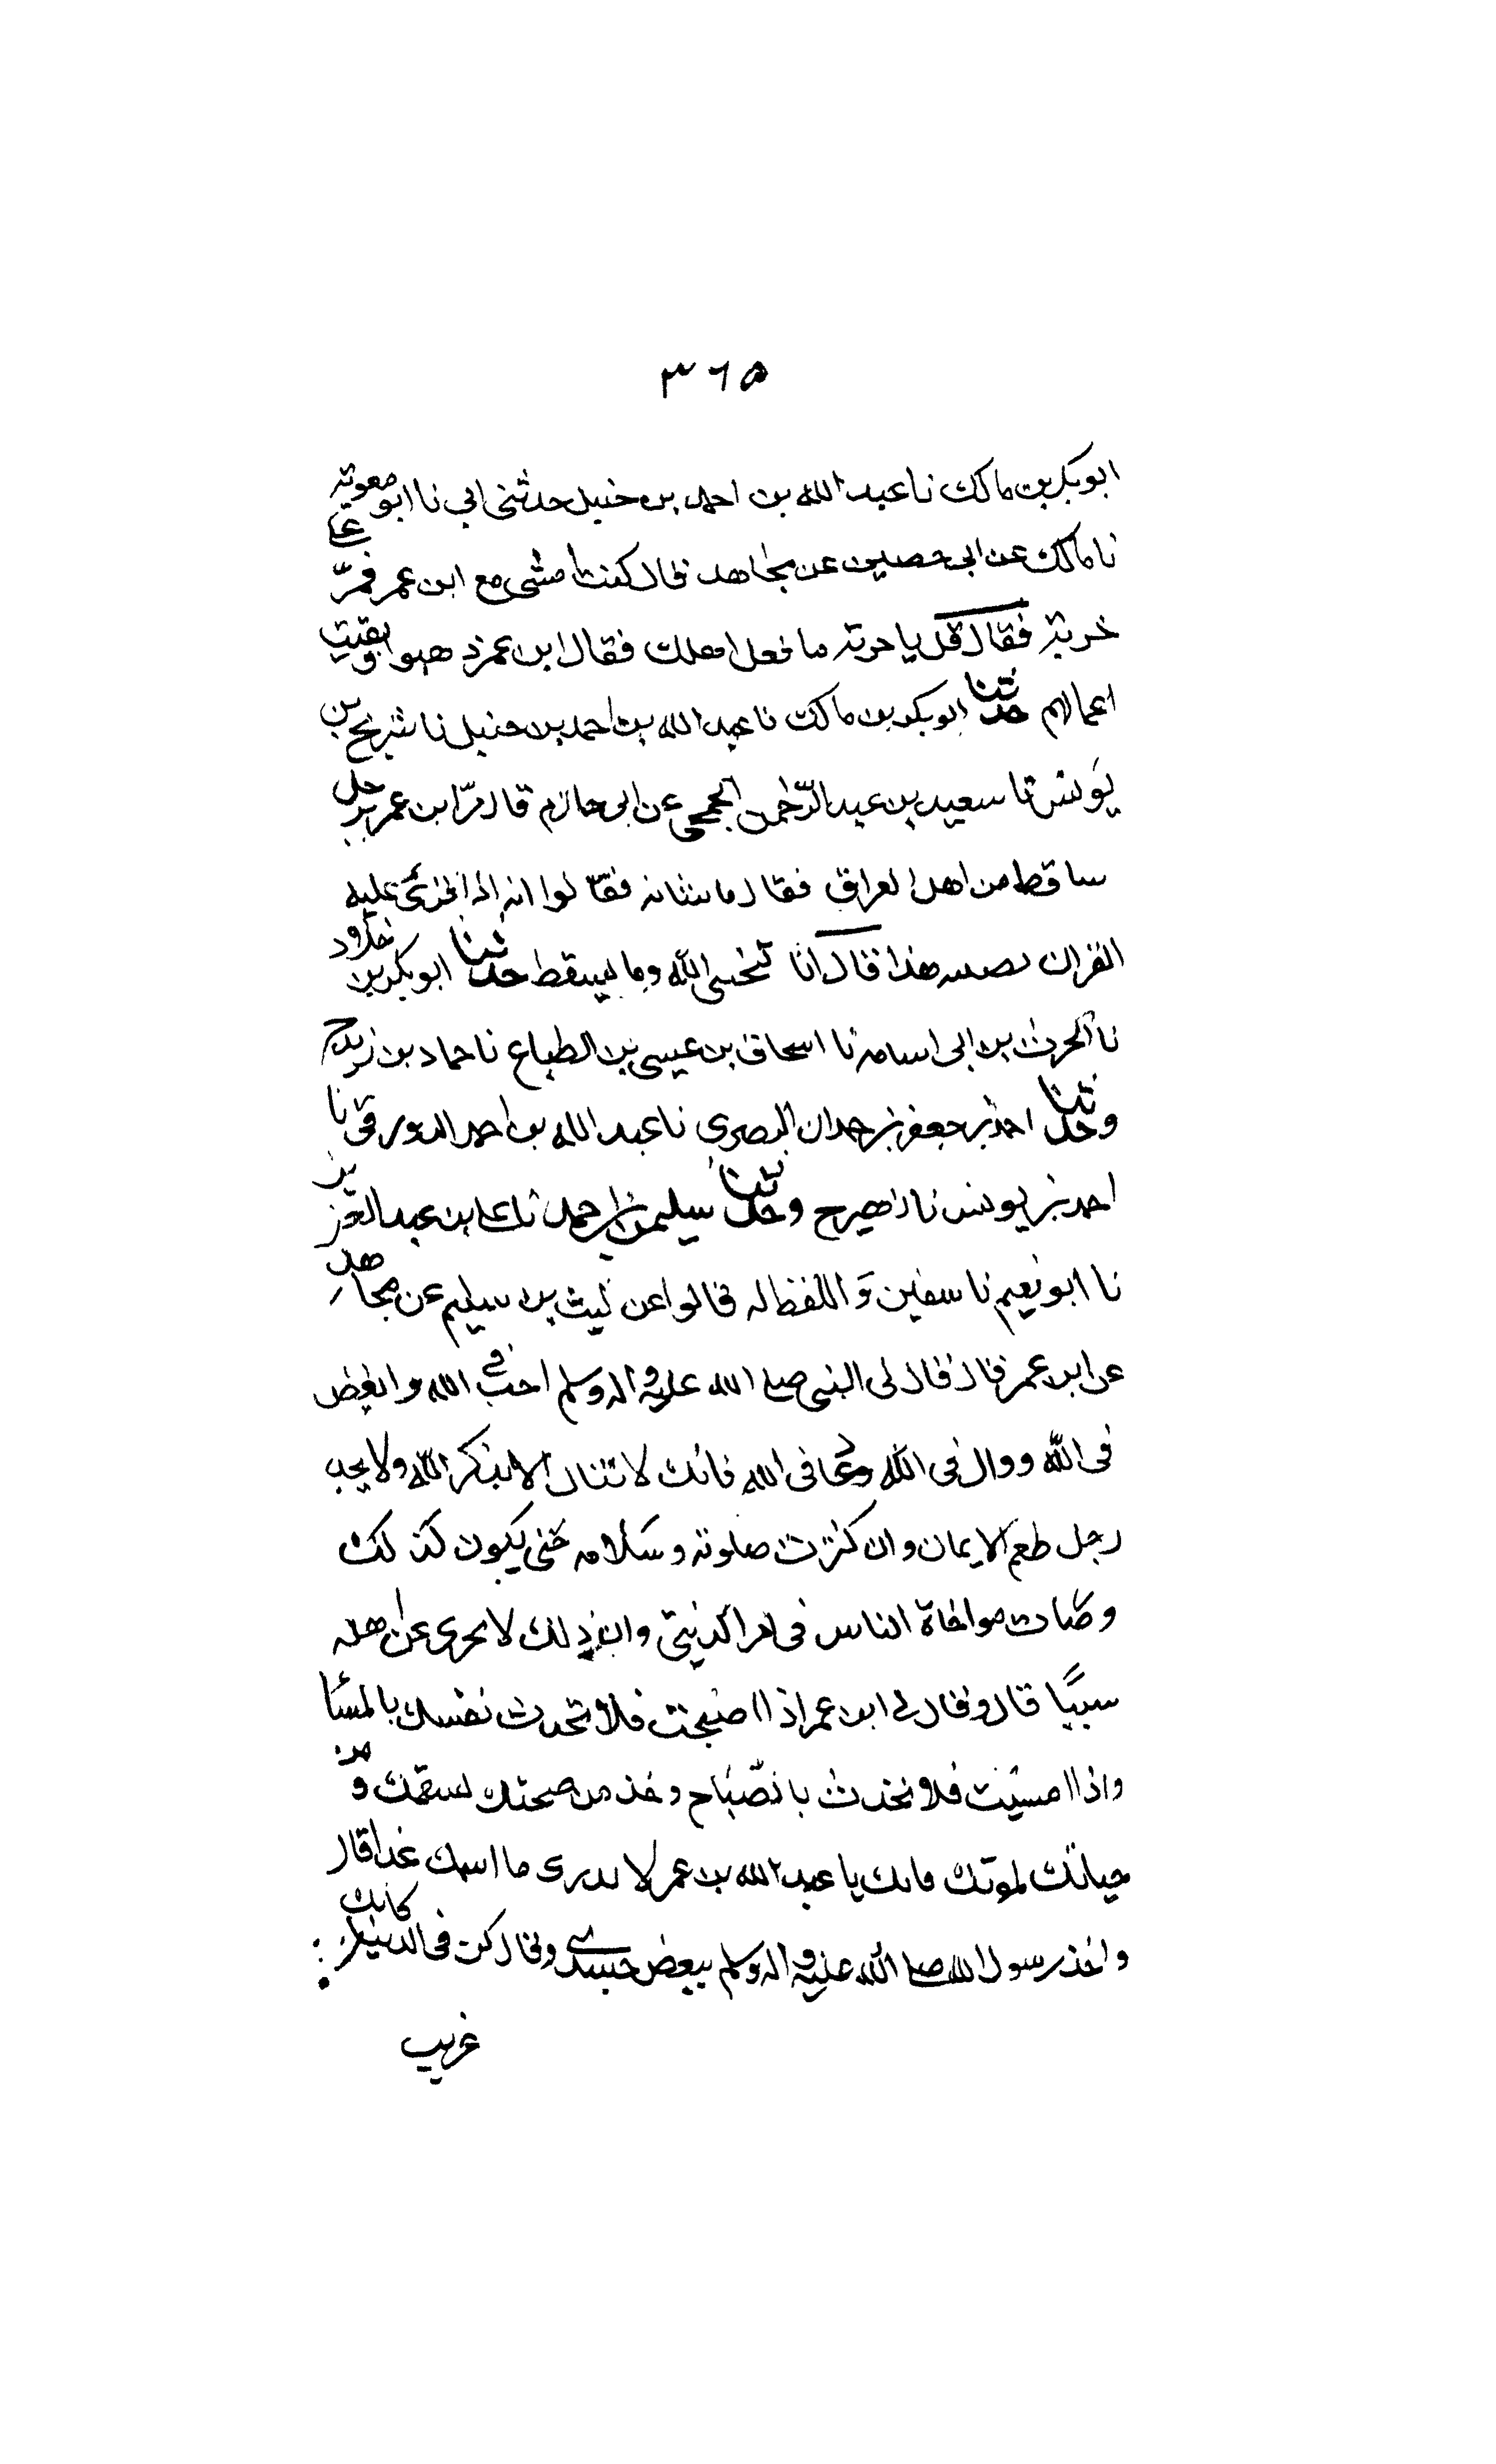 ٣٦٥
ابو بكر بن مالك نا عبد الله بن احمد بن حنبل حدثنى ابي نا ابو معوية
نا مالك عن ابى حصين عن مجاهد قال كنت امشى مع ابن عمر فمرّ على
خربة فقال قل يا خربة ما فعل اهلك فقال ابن عمر ذهبوا وبقيت
اعمالهم حدثنا ابو بكر بن مالك نا عبد الله بن احمد بن حنبل نا شريح بن
يونس نا سعيد بن عبد الرّحمن الجمحى عن ابى حازم قال مرّ ابن عمر برجل
ساقط من اهل العراق فقال ما شانه فقالوا انه اذا قرئ عليه
القران يصيبه هذا قال انا لنخشى الله وما نسقط حدثنا ابو بكر بن خلاد
نا الحرث بن ابى اسامه نا اسحاق بن عيسى بن الطباع نا حماد بن زيد ح
وحدثنا احمد بن جعفر بن حمدان البصرى نا عبد الله بن احمد الدورقى نا
احمد بن يونس نا زهير ح وحدثنا سليمن بن احمد نا على بن عبد العزيز
نا ابو نعيم نا سفين و اللفظ له قالوا عن ليث بن سليم عن مجاهد
عن ابن عمر قال قال لى النبى صلى الله عليه واله وسلم احب فى الله وابغض
فى الله ووال فى الله وعا فى الله فانك لا تنال الا بذكر الله ولا يجد
رجل طعم الايمان وان كثرت صلوته وسلامه حتى يكون كذلك
وصارت مواخاة الناس فى امر الدنيا وان ذلك لا يجرى عن اهله
سيبًا قال وقال لى ابن عمر اذا اصبحت فلا تحدث نفسك بالمسا
واذا امسيت فلا تحدث بالصّباح وخذ من صحتك لسقمك ومن
حياتك لموتك فانك يا عبد الله بن عمر لا تدرى ما اسمك غدا قال
واخذ رسول الله صلى الله عليه واله وسلم ببعض جسدى وقال كن فى الدنيا كانك
غريب